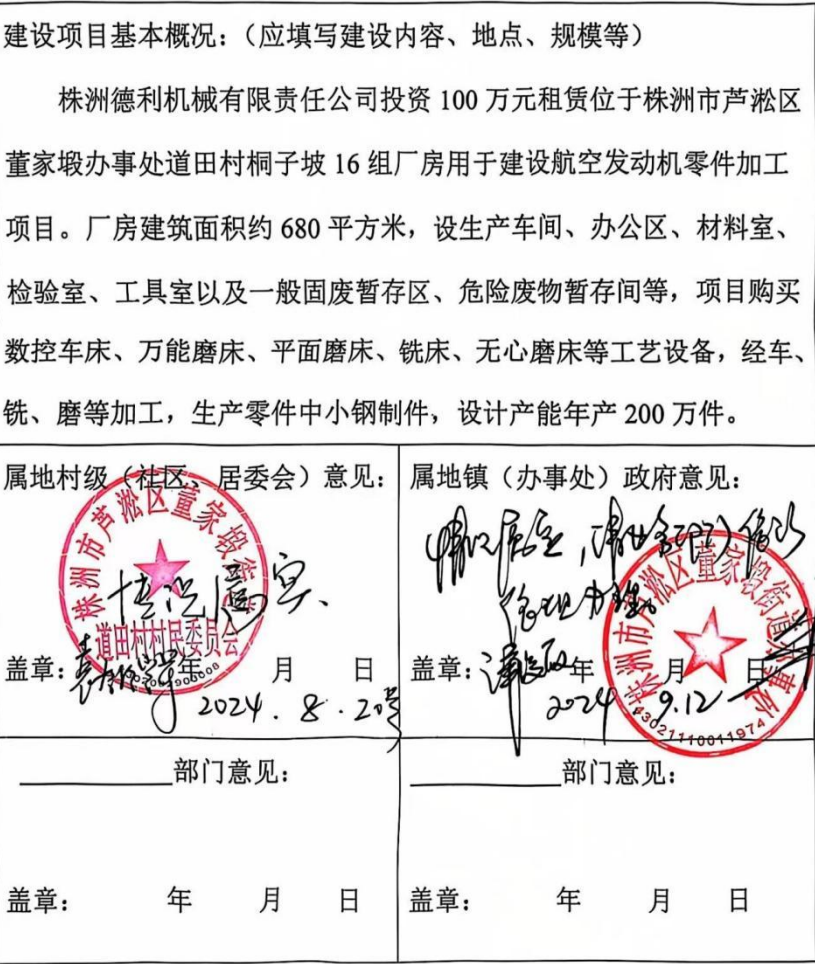 建设项目基本概况：（应填写建设内容、地点、规模等）
株洲德利机械有限责任公司投资 100 万元租赁位于株洲市芦淞区
董家塅办事处道田村桐子坡 16 组厂房用于建设航空发动机零件加工
项目。厂房建筑面积约 680 平方米，设生产车间、办公区、材料室、
检验室、工具室以及一般固废暂存区、危险废物暂存间等，项目购买
数控车床、万能磨床、平面磨床、铣床、无心磨床等工艺设备，经车、
铣、磨等加工，生产零件中小钢制件，设计产能年产 200 万件。
属地村级（社区、居委会）意见：
株洲市芦淞区董家塅街道
道田村村民委员会
情况属实、
盖章： 年 月 日
2024.8.20号
属地镇（办事处）政府意见：
情况属实，
株洲市芦淞区董家塅街道办事处
盖章： 年 月 日
2024 9.12
43021110011974
部门意见：
盖章： 年 月 日
部门意见：
盖章： 年 月 日